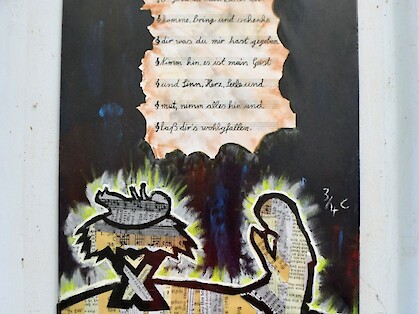 komme, bring und schenke
dir was du mir hast gegeben
Nimm hin, es ist mein Geist
und Sinn, Herz, Seele und
mut, nimm alles hin und
laß dir's wohlgefallen.
3/4 C